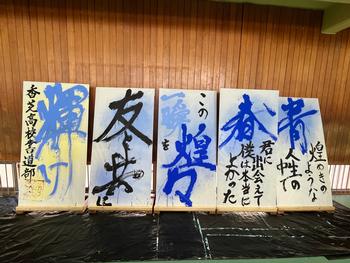 煌めきのような
人生の
青
春
君に
出会えて
僕は本当に
よかった
この
一瞬を
煌々
友と共に
輝け
香芝高校書道部